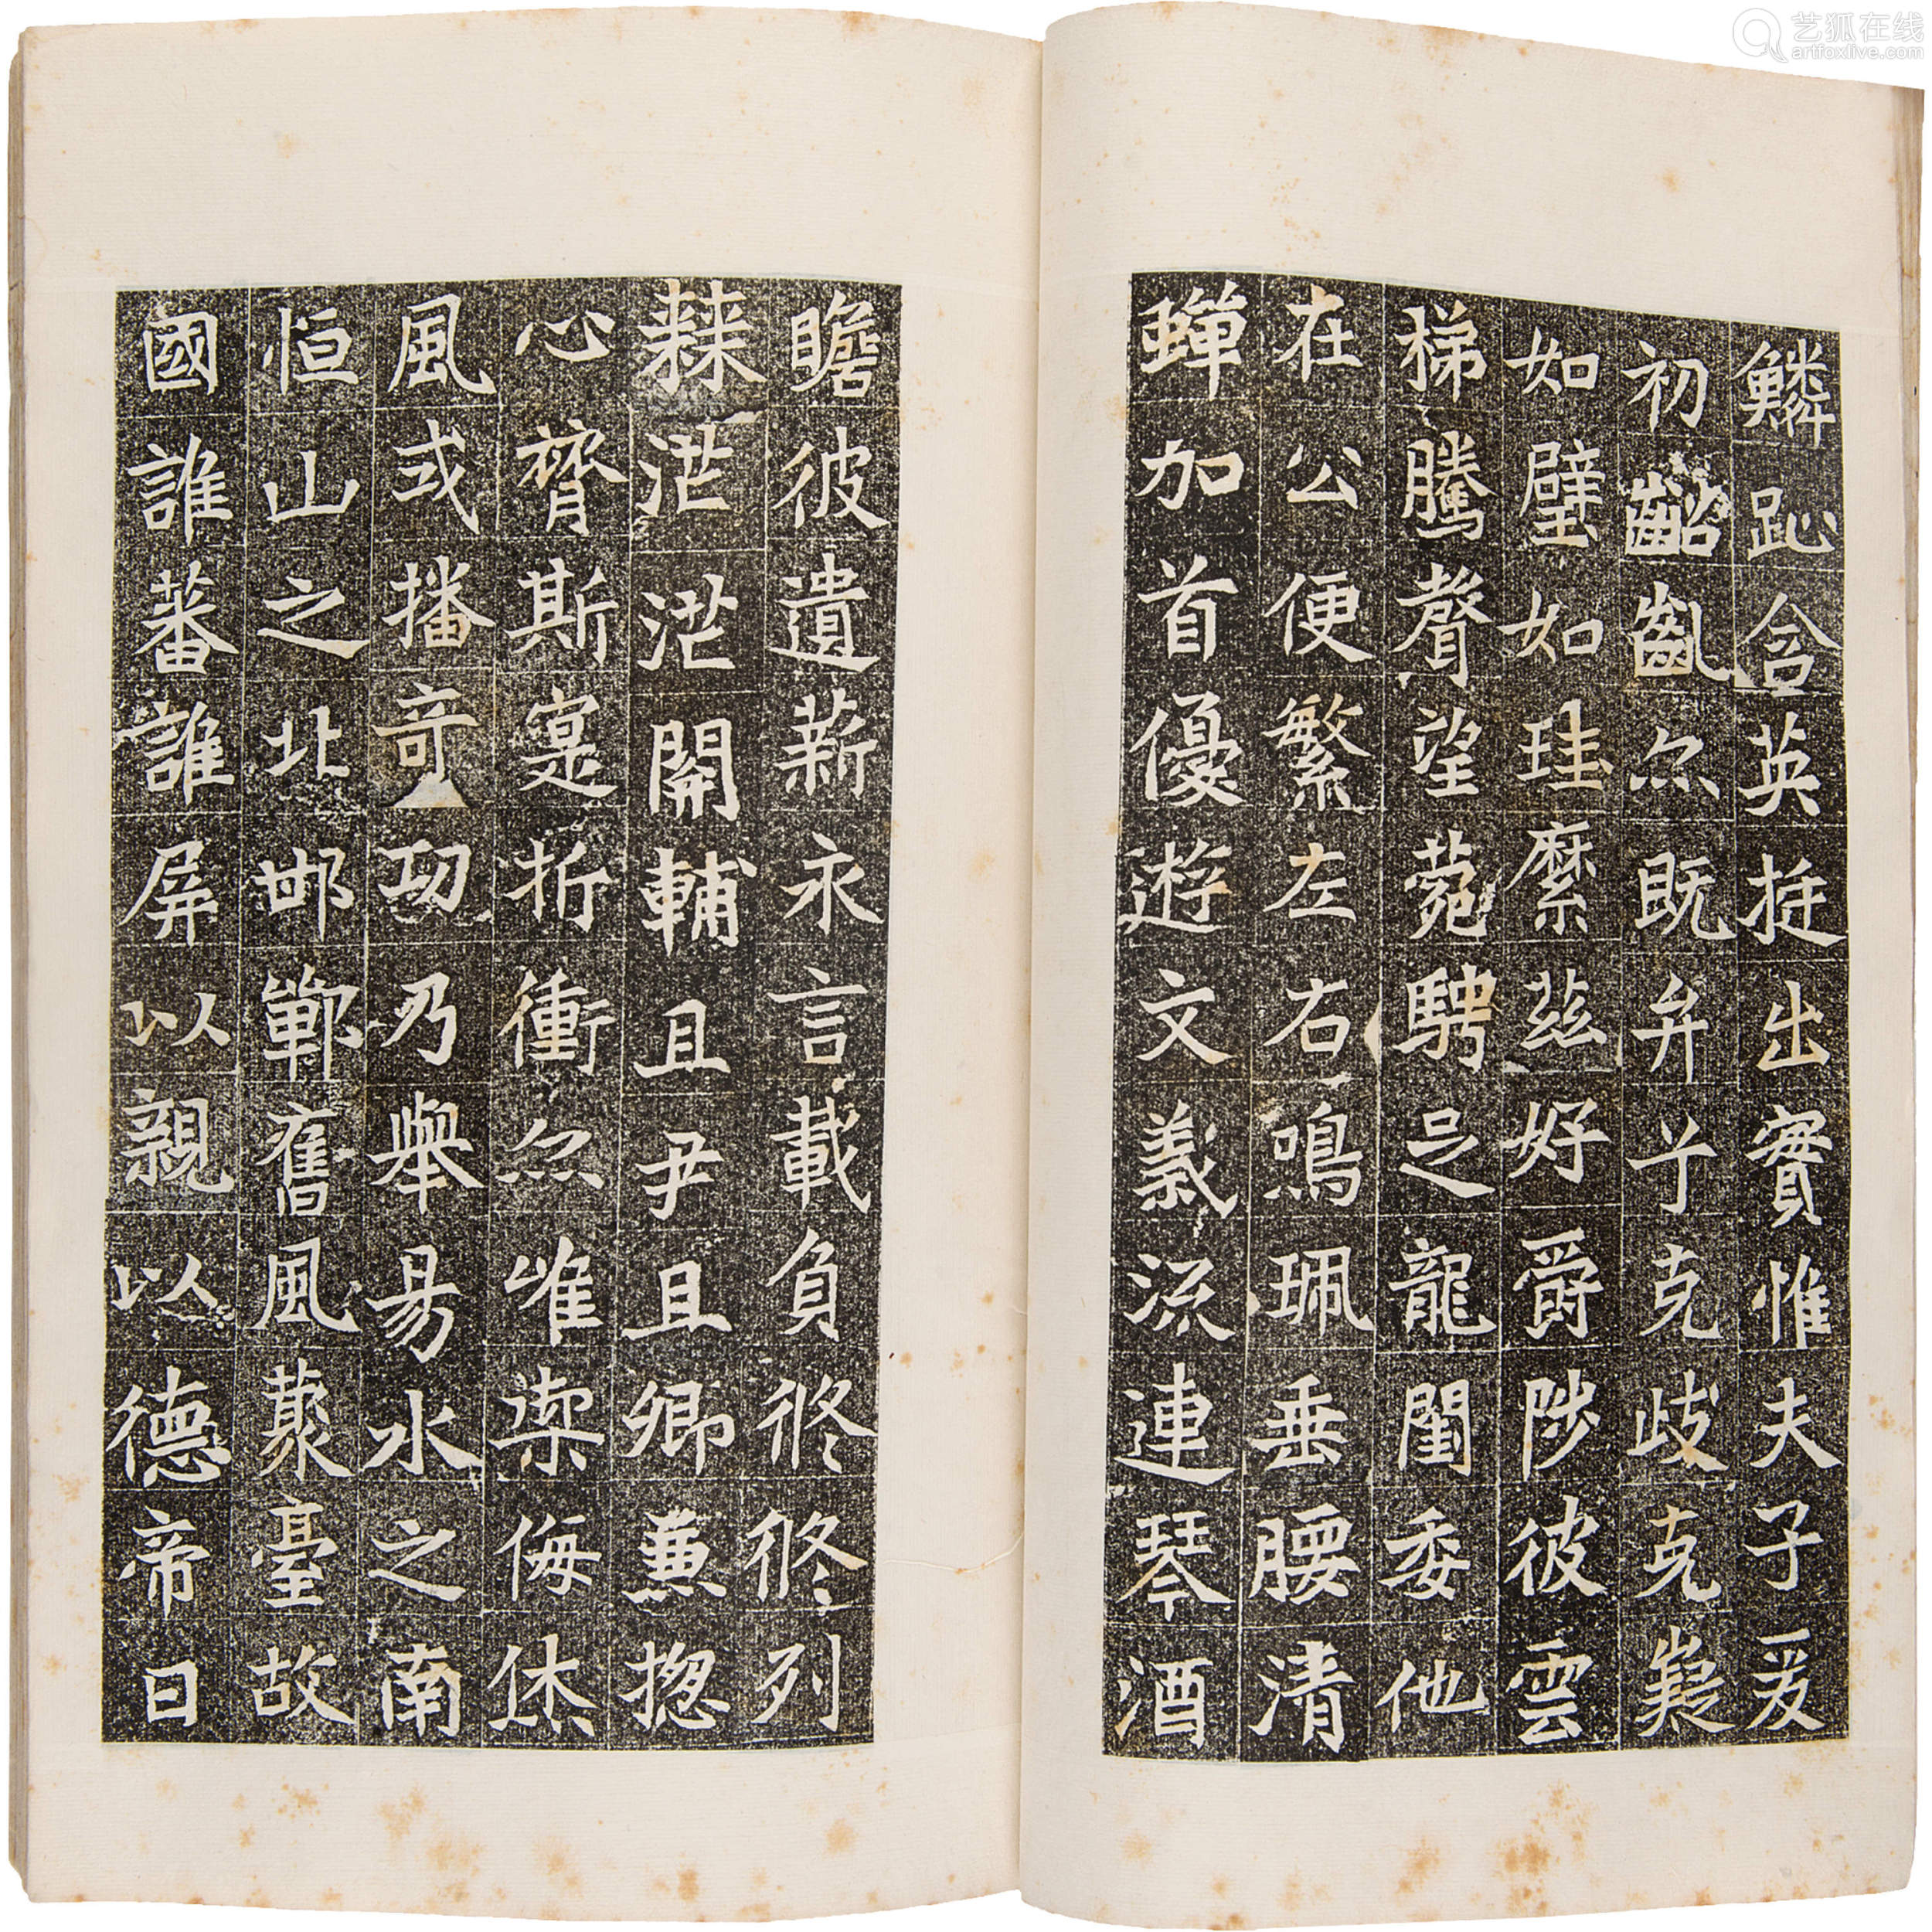 鱗趾含英挺出實惟夫子爰
初齠齓尒既弁兮克歧克嶷
如璧如珪縻茲好爵陟彼雲
梯騰聲望菀騁足龍閨委他
在公便繁左右鳴珮垂腰清
蟬加首優遊文義流連琴酒
瞻彼遺薪永言載負修修列
棘茫茫開輔且尹且卿兼揔
心膂斯寔折衝尒唯禦侮休
風或播奇功乃舉易水之南
恒山之北邯鄲舊風叢臺故
國誰蕃誰屏以親以德帝曰
艺狐在线
artfoxlive.com